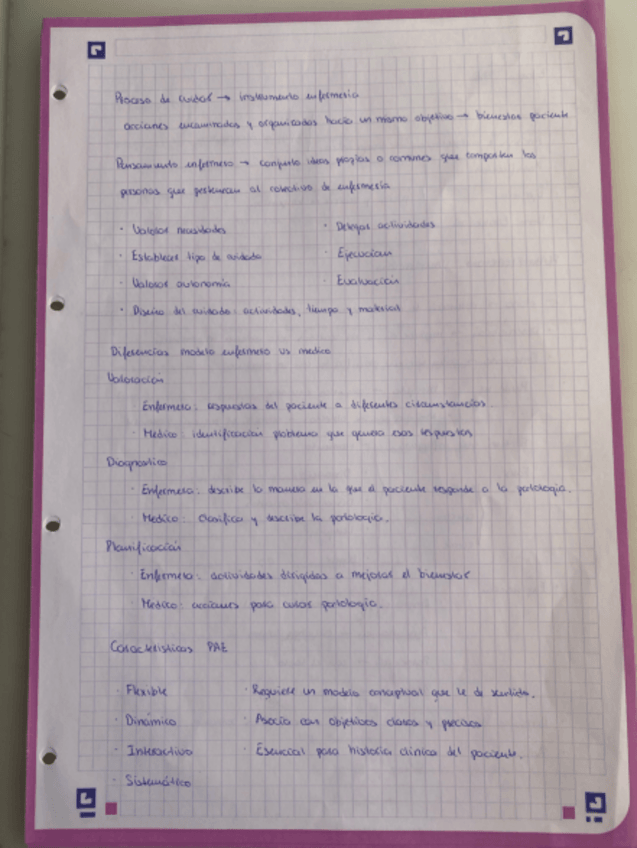 Proceso de cuidar → instrumento enfermería
acciones encaminadas y organizadas hacia un mismo objetivo → bienestar paciente
Pensamiento enfermero → conjunto ideas propias o comunes que comparten las
personas que pertenecen al colectivo de enfermería
· Valorar necesidades
· Delegar actividades
· Establecer tipo de cuidado
· Ejecución
· Valorar autonomía
· Evaluación
· Diseño del cuidado: actividades, tiempo y material
Diferencias modelo enfermero vs medico
Valoración
Enfermero: respuestas del paciente a diferentes circunstancias.
· Medico: identificación problema que genera esas respuestas
Diagnostico
· Enfermero: describe la manera en la que el paciente responde a la patología.
· Medico: clasifica y describe la patología.
Planificación
· Enfermero: actividades dirigidas a mejorar el bienestar
· Medico: acciones para curar patología.
Características PAE
· Flexible
· Requiere un modelo conceptual que le de sentido.
· Dinámico
· Asocia con objetivos claros y precisos
· Interactivo
· Esencial para historia clínica del paciente.
· Sistemático